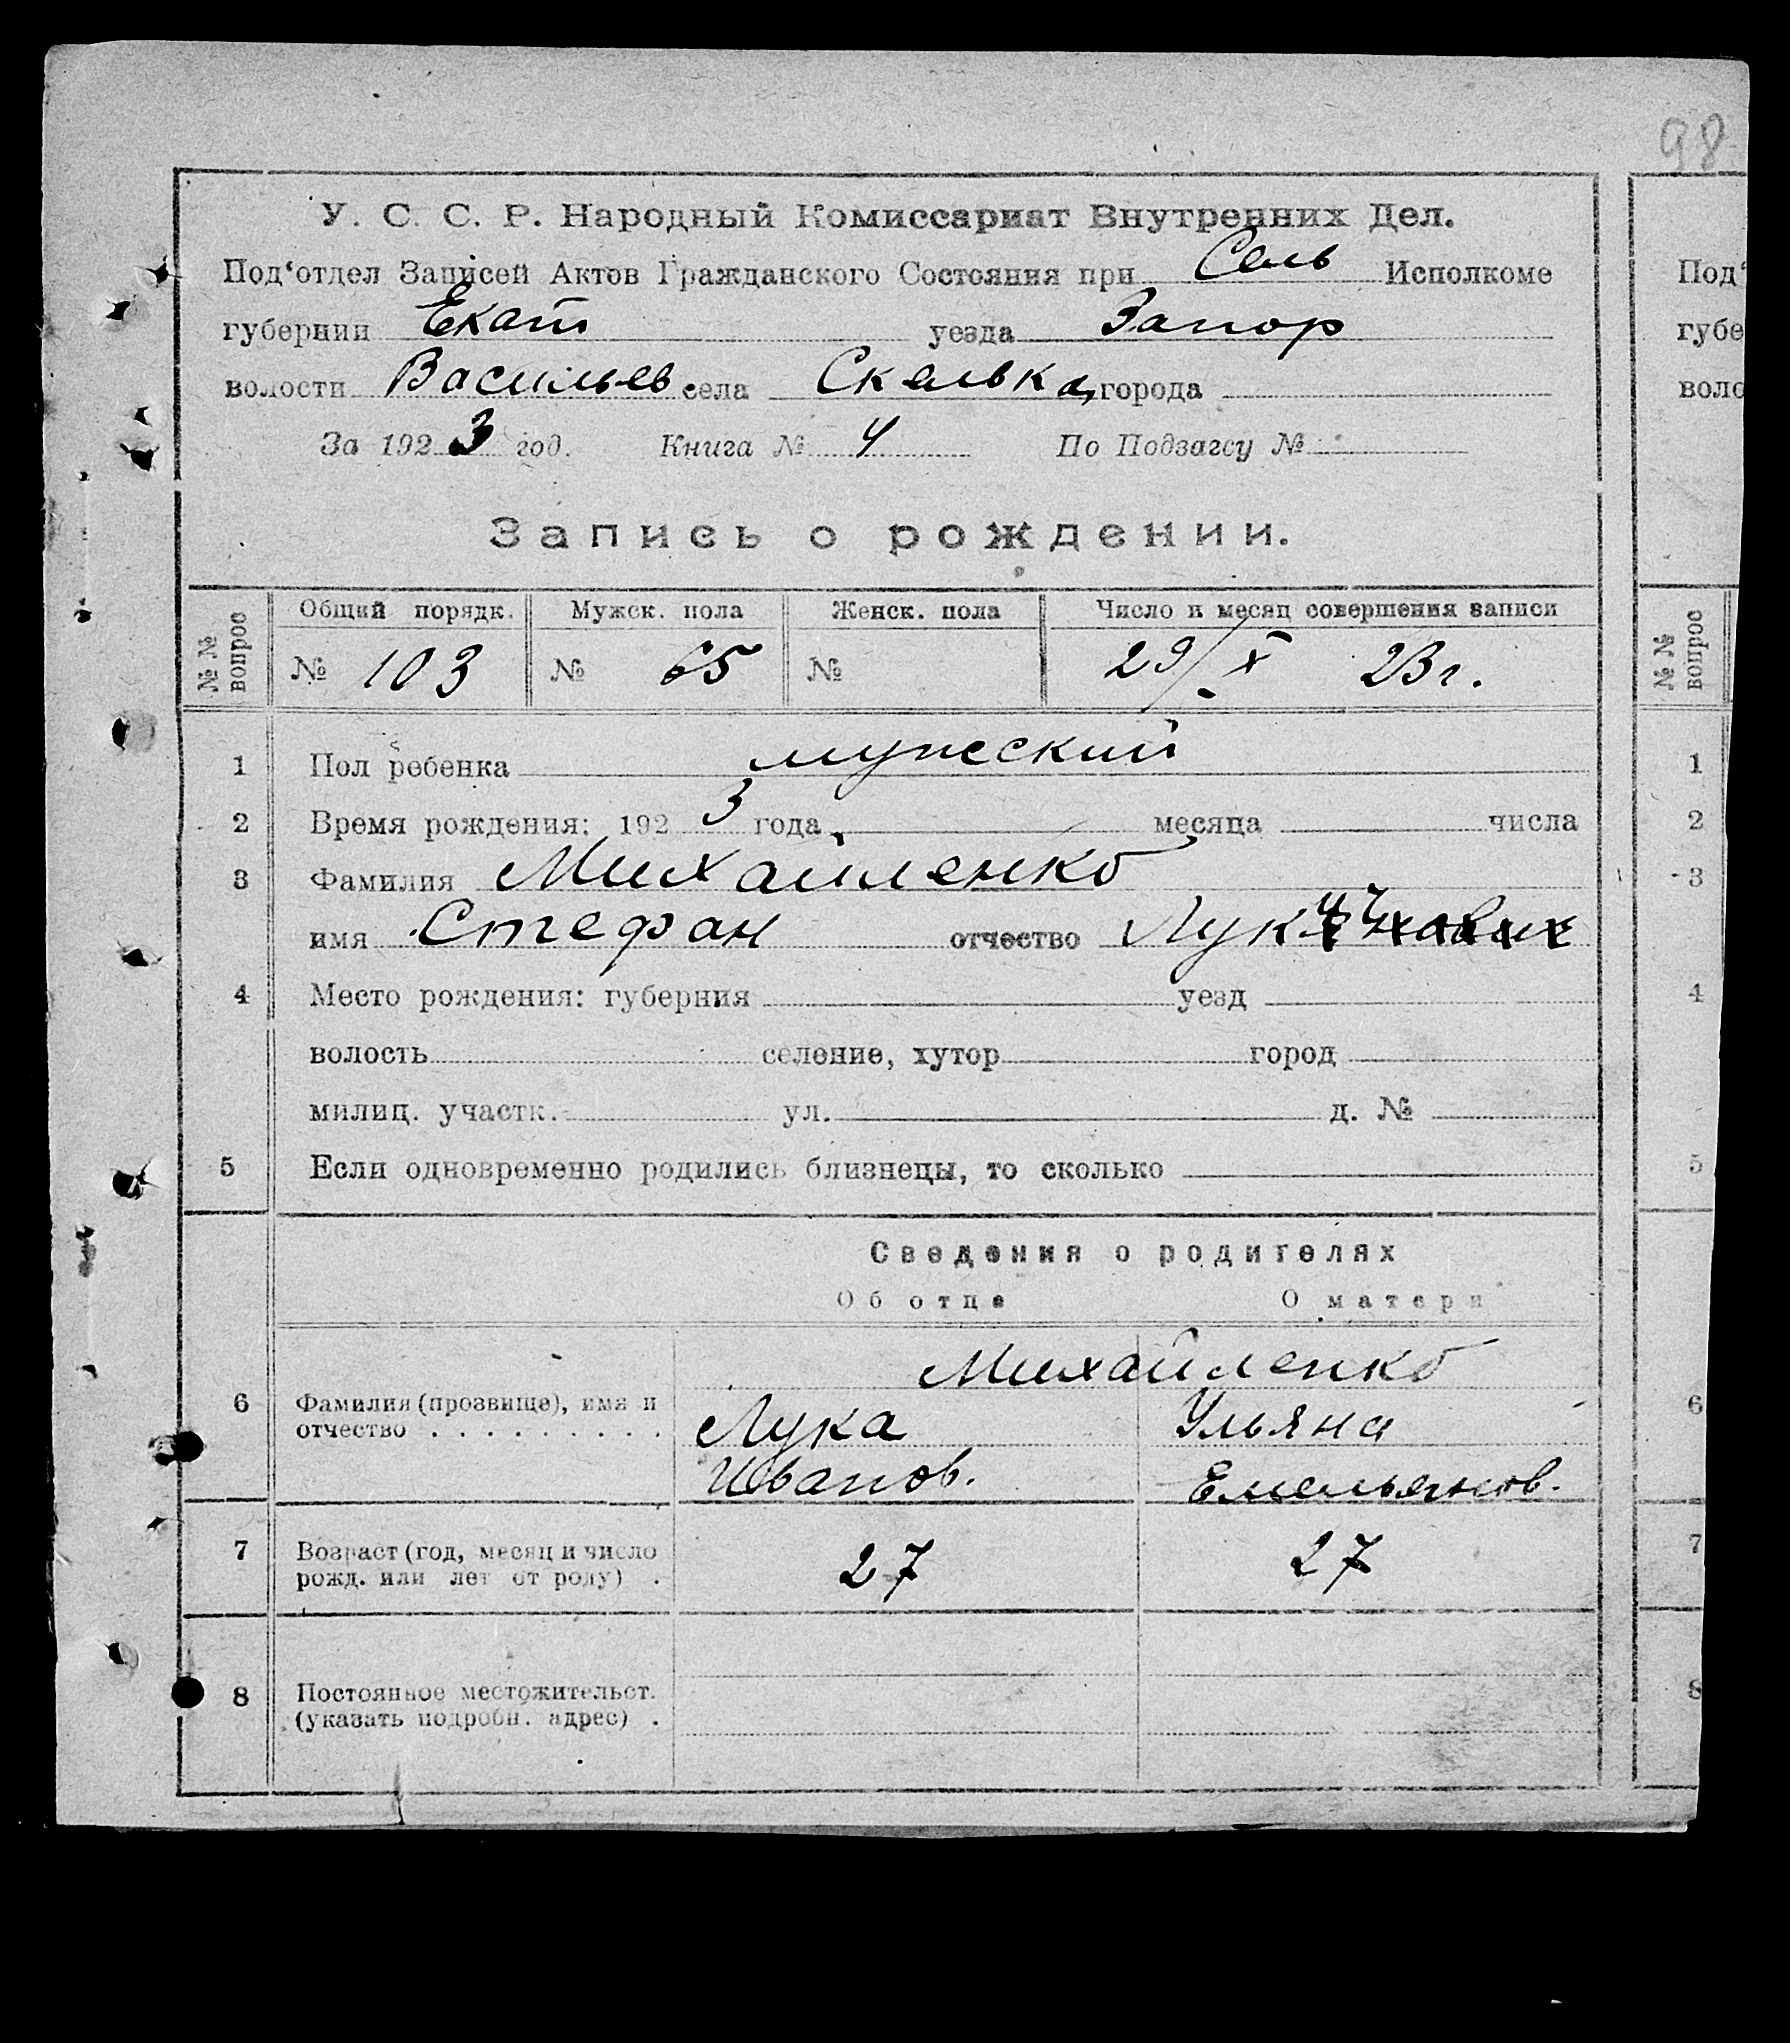 98
У. С. С. Р. Народный Комиссариат Внутренних Дел.
Под‘отдел Записей Актов Гражданского Состояния при Сель Исполкоме
губернии Екат уезда Запор
волости Васильев села Скелька, города
За 1923 год. Книга № 4 По Подзагсу №
Запись о рождении.
№№ вопрос Общий порядк. Мужск. пола Женск. пола Число и месяц совершения записи
№ 103 № 65 № 29/X 23 г.
1 Пол ребенка мужеский
2 Время рождения: 1923 года, месяца числа
3 Фамилия Михайленко
имя Стефан отчество Лук
4 Место рождения: губерния уезд
волость селение, хутор город
милиц. участк. ул. д. №
5 Если одновременно родились близнецы, то сколько
Сведения о родителях
Об отце О матери
Михайленко
6 Фамилия (прозвище), имя и Лука Ульяна
отчество . . . . . . . . .
Иванов. Емельянов.
7 Возраст (год, месяц и число 27 27
рожд. или лет от роду) .
8 Постоянное местожительст.
(указать подробн. адрес) .
Под‘
губе
воло
№№ вопрос
1
2
3
4
5
6
7
8